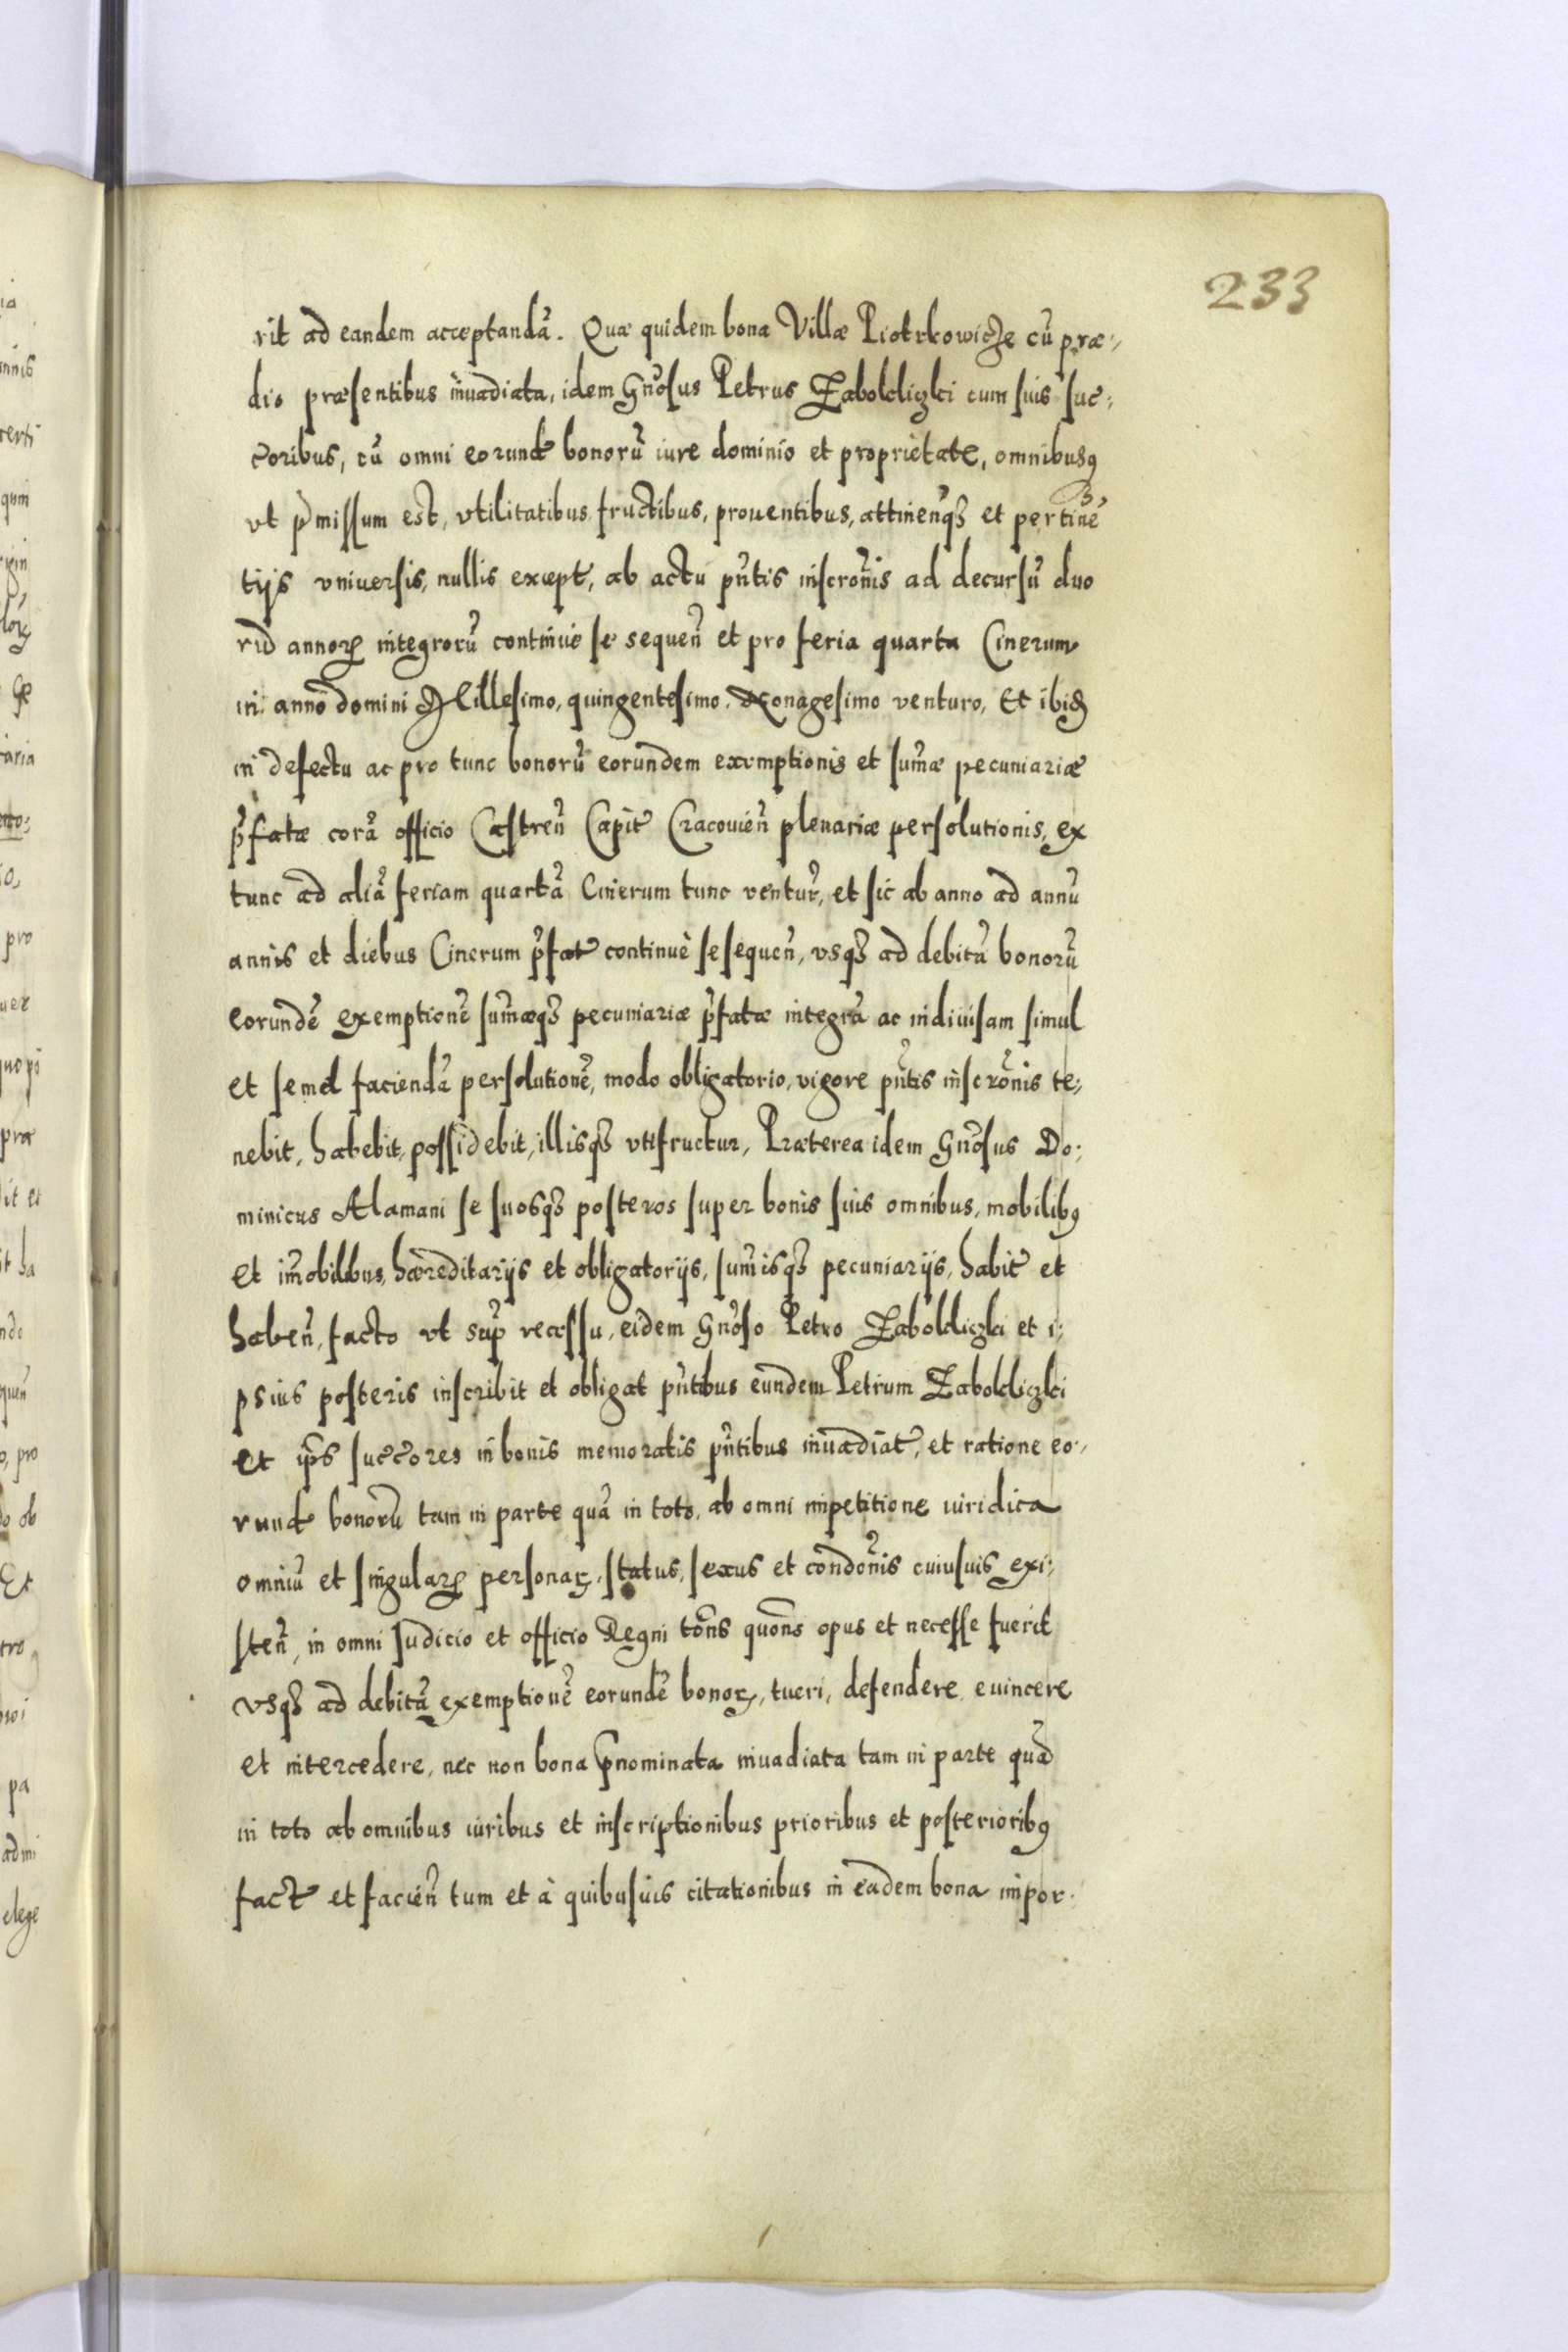 233
rit ad eandem acceptandã. Quæ quidem bona Villæ Piotrkowicze cũ præ-,
dio præsentibus inuadiata, idem Gn̄osus Petrus Zaboklićzki cum suis suc:
coribus, cũ omni eorund bonorũ iure dominio et proprietate, omnibusq
vt p̄missum est, vtilitatibus fructibus, prouentibus, attinen̄q3 et pertinẽ
tijs vniuersis, nullis except, ab actu pñtis inscron̄is ad decursũ duo
rũ annor integrorũ continuè se sequeñ et pro feria quarta Cinerum
in anno domini Millesimo, quingentesimo, Nonagesimo venturo, Et ibid
in defectu ac pro tunc bonorũ eorundem exemptionis et sum̄æ pecuniariæ
p̄fatæ corã officio Castreñ Capit Cracouieñ plenariæ persolutionis, ex
tunc ad aliã feriam quartã Cinerum tunc ventur, et sic ab anno ad annũ
annis et diebus Cinerum p̄fat continuè se sequeñ, vsq3 ad debitã bonorũ
eorundẽ exemptionẽ sum̄æq3 pecuniariæ p̄fatæ integrã ac indiuisam simul
et semel faciendã persolutionẽ, modo obligatorio, vigore pñtis inscron̄is te:,
nebit, habebit, possidebit, illisq3 vtifructur, Præterea idem Gn̄osus Do:
minicus Alamani se suosq3 posteros super bonis suis omnibus, mobilibq
et im̄obilibus, hæreditarijs et obligatorijs, sum̄isq3 pecuniarijs, habit et
habeñ, facto vt sup̄ recessu, eidem Gn̄oso Petro Zaboklićzki et i:
psius posteris inscribit et obligat pñtibus eundem Petrum Zaboklićzki
et ip̄s succores in bonis memoratis pñtibus inuadiat, et ratione eo-,
rund bonorũ tam in parte quã in toto, ab omni impetitione iuridica
omniũ et singular personar, status, sexus et condon̄is cuiusuis exi:,
steñ, in omni Judicio et officio Regni ton̄s quon̄s opus et necesse fuerit
vsq3 ad debitã exemptionẽ eorundẽ bonor, tueri, defendere euincere
et intercedere, nec non bona p̄nominata inuadiata tam in parte quã
in toto ab omnibus iuribus et inscriptionibus prioribus et posterioribq
fact et facieñ tum et à quibusuis citationibus in eadem bona impor.